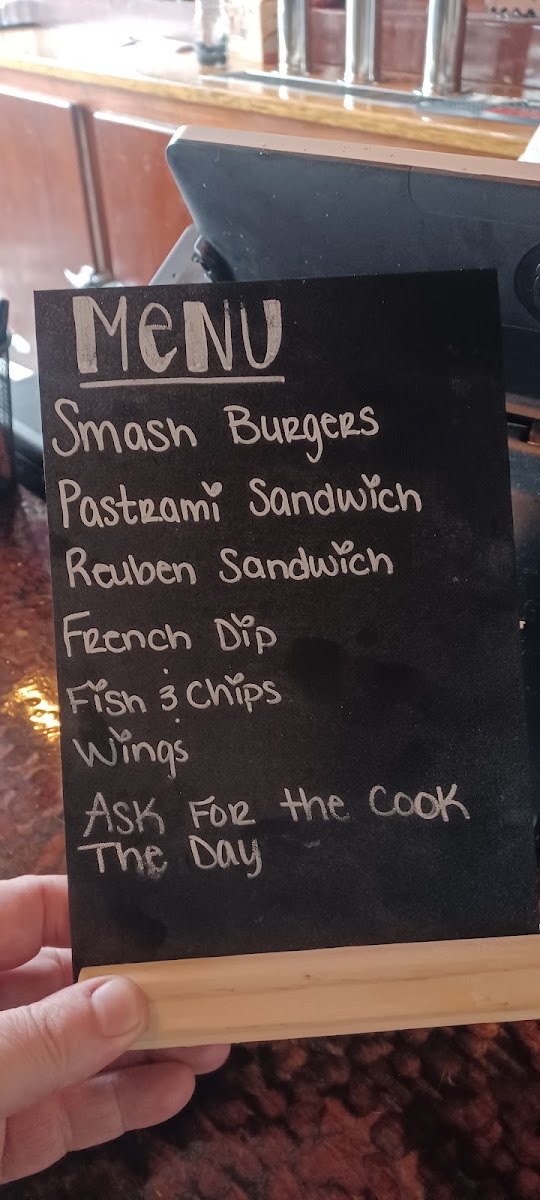 MENU
Smash Burgers
Pastrami Sandwich
Reuben Sandwich
French Dip
Fish & Chips
Wings
Ask For the Cook
The Day